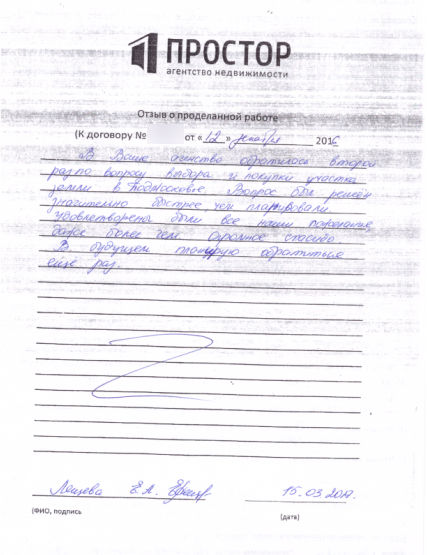 ПРОСТОР
агентство недвижимости
Отзыв о проделанной работе
(К договору № от «12» декабря 2016
В Ваше агенство обратилась второй
раз по вопросу выбора и покупки участка
земли в Подмосковье. Вопрос был решён
значительно быстрее чем планировали.
удовлетворены были все наши пожелания,
даже более чем. Огромное спасибо.
В будущем планирую обратиться
еще раз.
Лещева Е.А.
15.03.2017.
(ФИО, подпись
(дата)